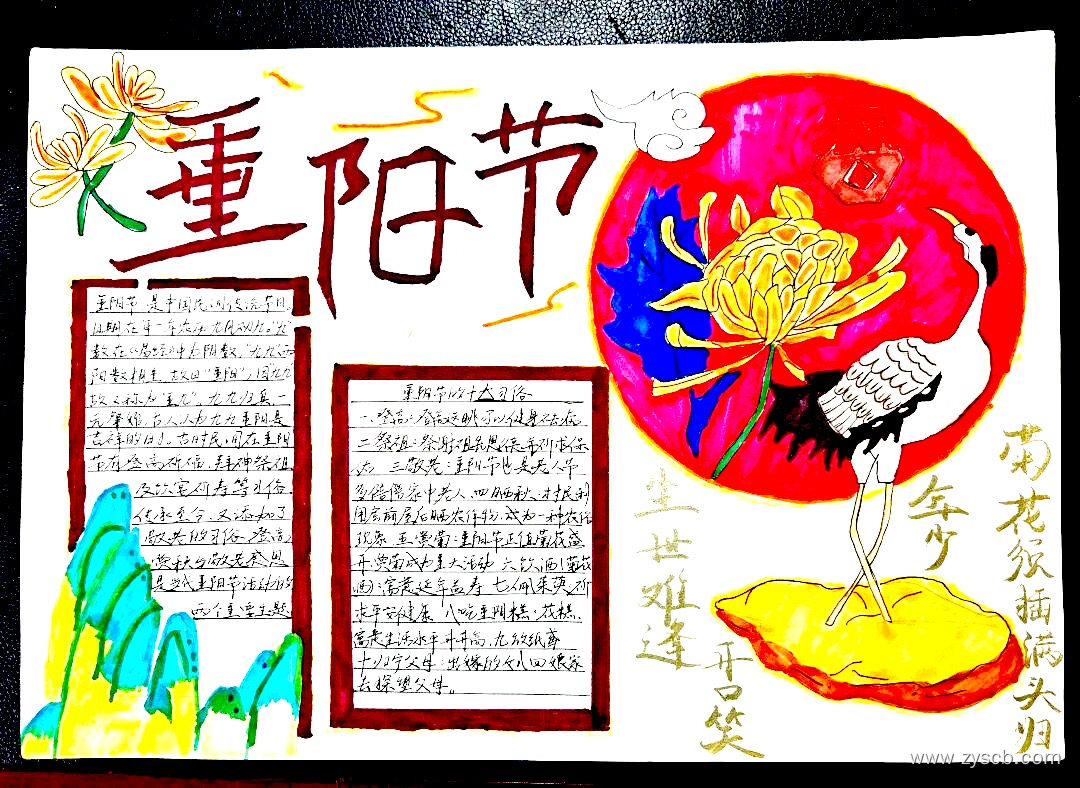 重阳节
重阳节,是中国民间传统节日,
日期在每一年农历九月初九。"九"
数在《易经》中为阳数,"九九"两
阳数相重,故曰"重阳";因"九九
故又称为"重九"。九九归真,一
元肇始,古人认为九九重阳是
吉祥的日子。古时民间在重阳
节有登高祈福、拜神祭祖
及饮宴祈寿等习俗。
传承至今,又添加了
敬老的习俗,登高
赏秋与敬老感恩
是当代重阳节活动的
两个重要主题
重阳节的十大习俗
一、登高:登高远眺可以健身祛
二祭祖:祭谢祖先恩保
三敬老:重阳节也是老人节
多陪陪家中老人 四晒秋:村民利
用房前屋后晒农作物,成为一种农俗
现象 五赏菊:重阳节正值菊花盛
开,赏菊成为重大活动 六饮酒(菊花
酒):寓意延年益寿 七佩茱萸,祈
求平安健康 八吃重阳糕:花糕,
寓意生活水平步步高,九放纸鸢
十归宁父母:出嫁的女儿回娘家
去探望父母。
尘世难逢
开口笑
年少
菊花须插满头归
www.zyscb.com